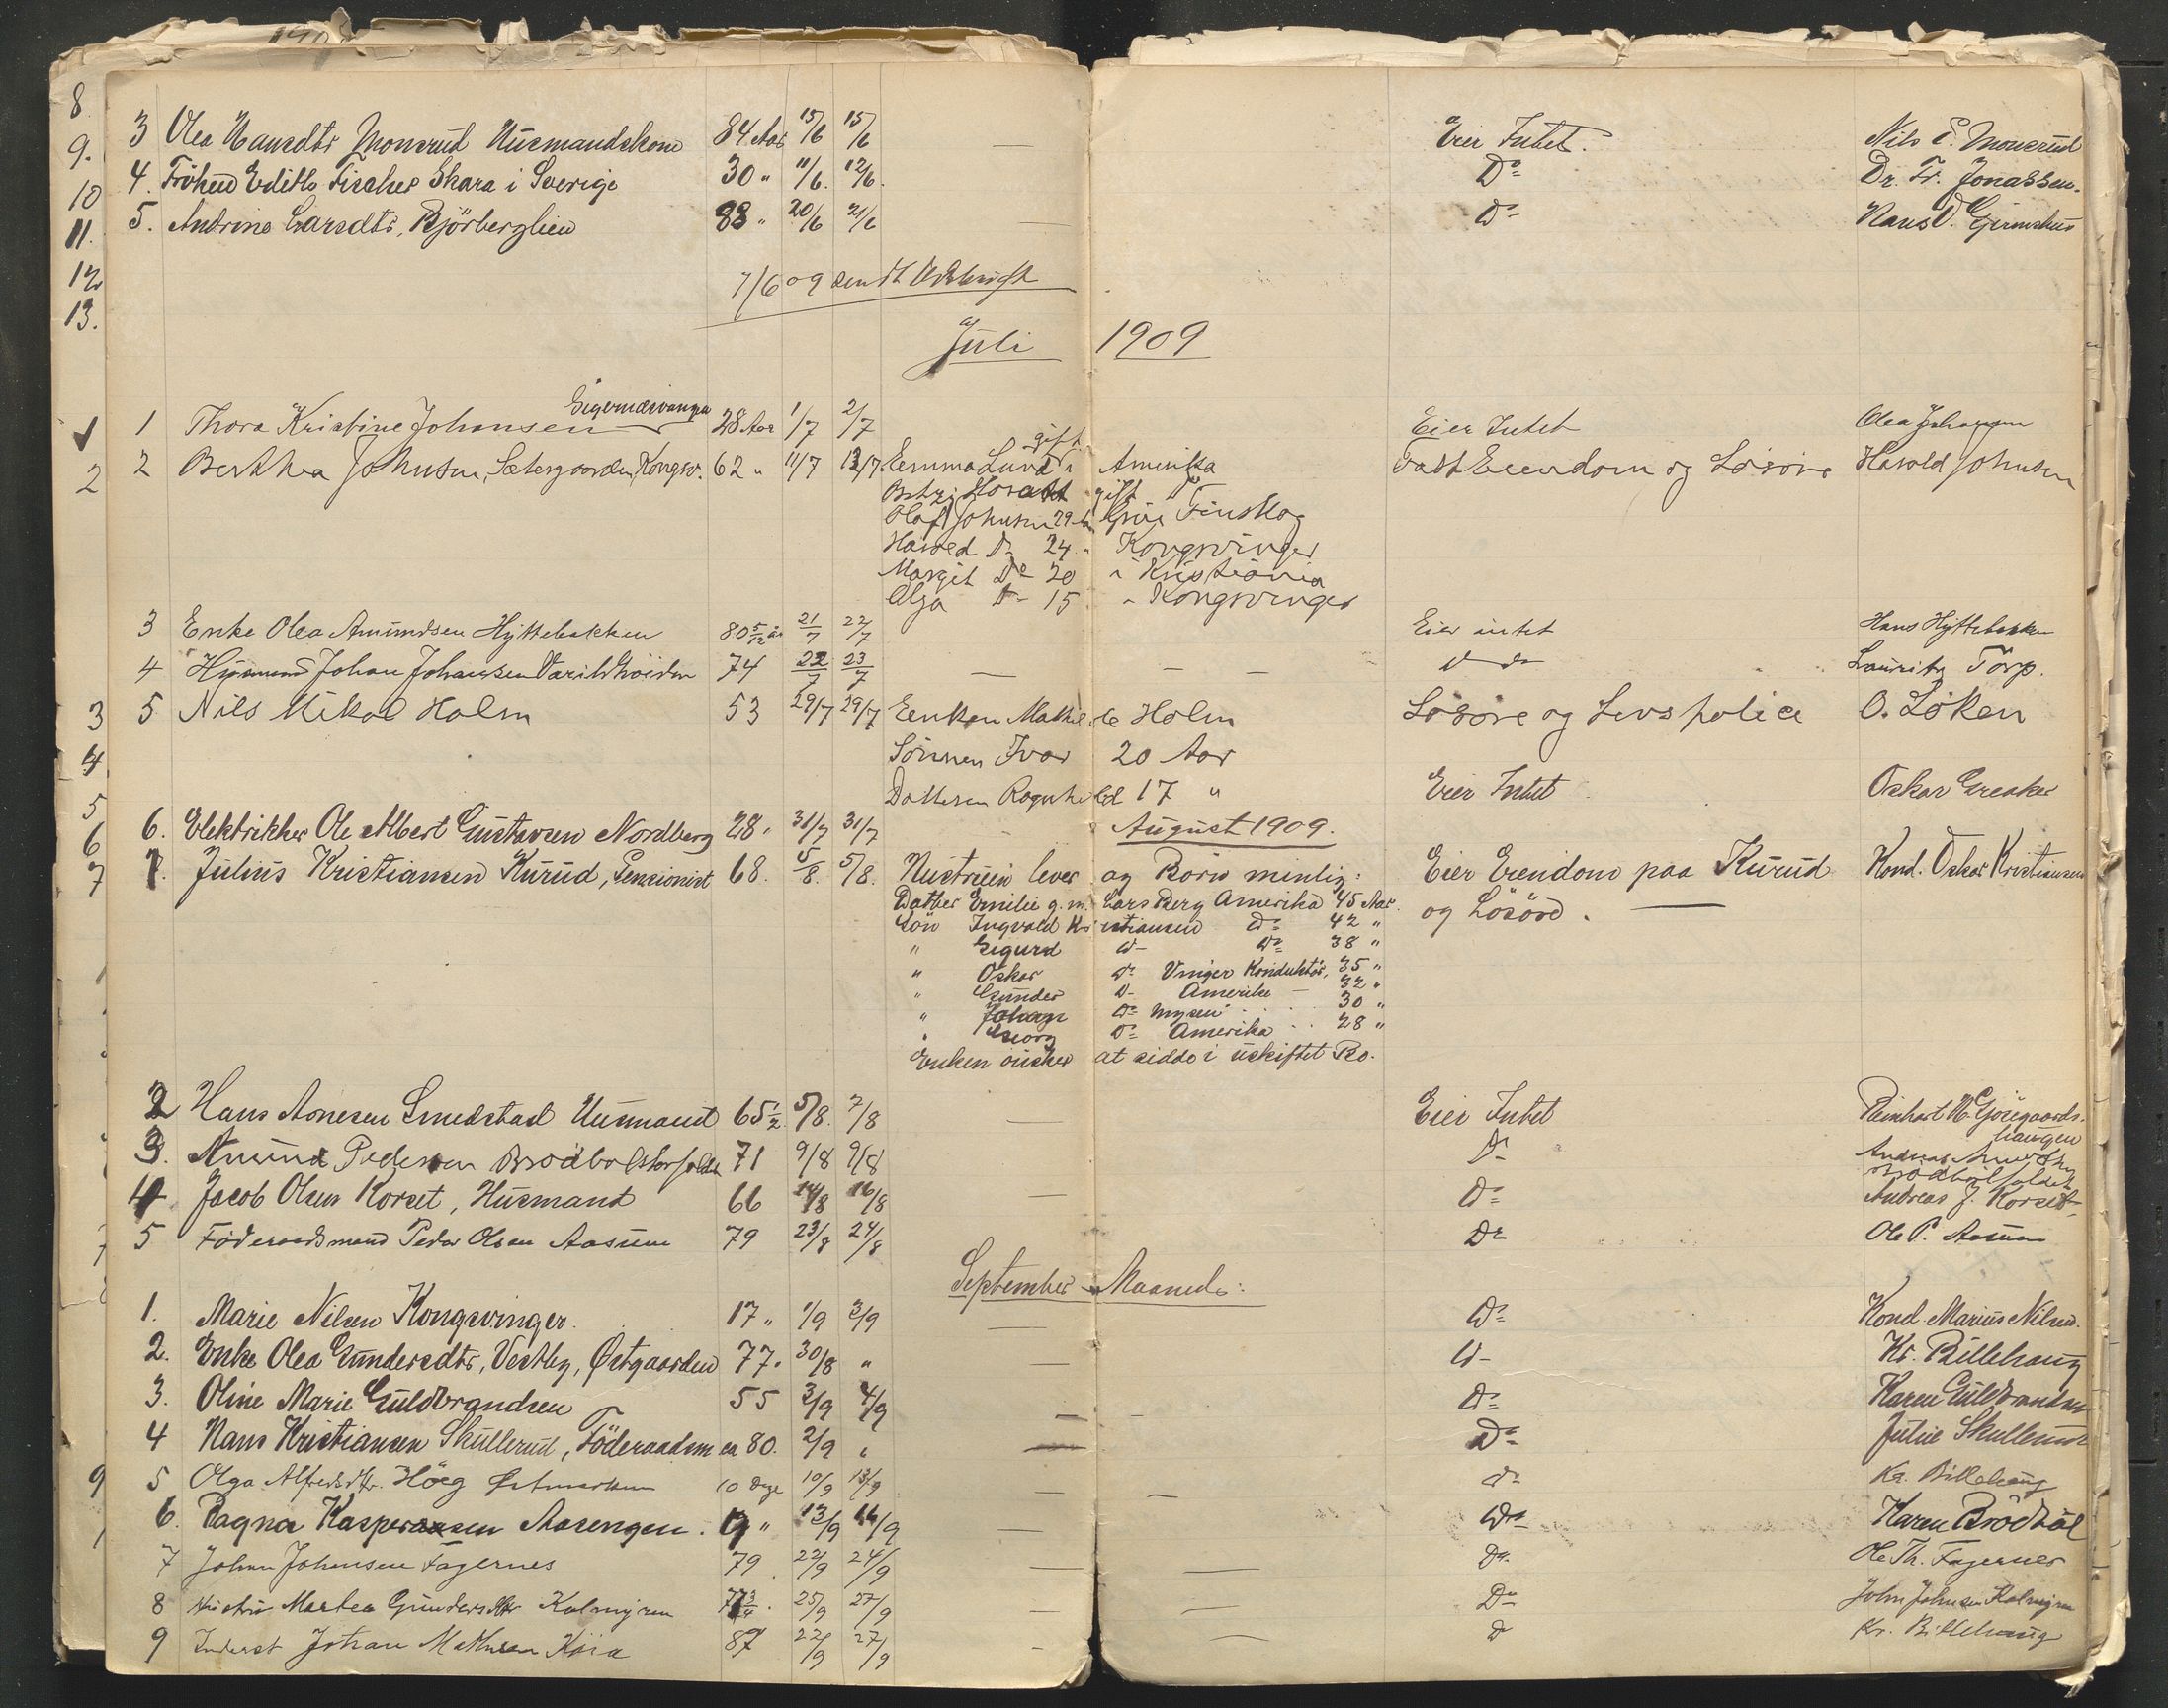 8.
9.
10
11.
12
13.
3 Olea Hansdtr Monsrud Husmandskone 84 Aar 15/6 15/6 — Eier Intet. Nils E. Monsrud
4. Fröken Edith Fischer Skara i Sverige 30 " 11/6. 12/6. Do Dr. Fr. Jonassen.
5. Andrine Larsdtr, Björberglien 83 " 20/6 21/6 — Do Hans O. Gjermshus
7/6 09 sendt Udskrift
Juli 1909
Sigernæsvangen
1 1 Thora Kristine Johansen 28 Aar 1/7 2/7 Eier Intet Olea Johansen
2 2 Berthea Johnsen, Sætergaarden, Kongsv. 62 " 11/7 13/7 Emma Lund gift i Amerika Fast Eiendom og Lösöre Harold Johnsen
gift Do
Olaf Johnsen 29 Aar Grue Finskog
Harald Do 24 " Kongsvinger
Margit Do 20 i Kristiania
Olga Do 15 " Kongsvinger
3 Enke Olea Amundsen Hyttebakken 80 5/12 år 21/7 22/7 Eier intet Hans Hyttebakken
4 Husmand Johan Johansen 74 22/7 23/7 — — Do Lauritz Torp.
3 5 Nils Mikal Holm 53 29/7 29/7 Enken Mathilde Holm Lösöre og Livspolice O. Löken
4 Sönnen Ivar 20 Aar
5 Datteren Ragnhild 17 "
6 6. Elektriker Ole Albert Gustavsen Nordberg 28 " 31/7 31/7 - Eier Intet Oskar Greaker
August 1909.
7 1. Julius Kristiansen Kurud, Pensionist 68. 5/8. 5/8. Hustruen lever og Börn nemlig: Eier Eiendom paa Kurud Kond. Oskar Kristiansen
Datter Emilie g. m. Lars Berg Amerika 45 Aar. og Lösöre. —
Sön Ingvald Kristiansen Do 42 "
" Sigurd Do Do 38 "
" Oskar Do Vinger Konduktör, 35 "
" Gunder Do Amerika — 32 "
" Johan Do Mysen 30 "
" Georg Do Amerika 28 "
Enken önsker at sidde i uskiftet Bo.
2 Hans Arnesen Smedstad Husmand 65 1/2. 5/8. 7/8 — Eier Intet Reinhart H. Gjösegaards-
haugen
3. Amund Pedersen 71 9/8 9/8 Do Andreas
4 Jacob Olsen Korset, Husmand 66 14/8 16/8 — Do Andreas J. Korset
5 Föderaadsmand Peder Olsen Aasum 79 23/8 24/8 Do Ole P. Aasum
September Maaned:
1. Marie Nilsen Kongsvinger. 17 " 1/9 3/9 — Do Kond Marius Nilsen.
2. Enke Olea Gundersdtr, Vestby, Østgaarden 77 " 30/8 " — Do Kr. Billehaug
3. Oline Marie Guldbrandsen 55 3/9 4/9 — - Do Karen Guldbrandsen
4 Hans Kristiansen Skullerud, Föderaadsm ca 80. 2/9 " — Do Julie Skullerud
9 5 Olga Alfredsdtr. Höeg Østmarken 10 Dage 10/9 13/9 — — Do Kr. Billehaug
6. Ragna Kaspersen Aasengen. 9 " 13/9 16/9 Do Karen Brödböl
7 Johan Johansen Fagernes 79 22/9 24/9 — — Do Ole Th. Fagernes
8 Hustru Marthea Gundersdtr Kalmyren 77 3/4. 25/9 27/9 — — Do John Johnsen Kalmyren
9 Inderst Johan Mathisen Kjöia 87 22/9 27/9 - — D Kr. Billehaug